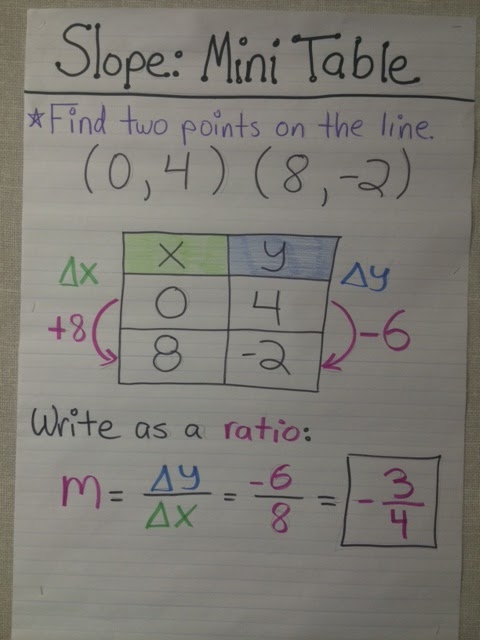 Slope: Mini Table
*Find two points on the line.
(0, 4) (8, -2)
x y
Δx Δy
0 4
+8 -6
8 -2
Write as a ratio:
m = Δy/Δx = -6/8 = -3/4